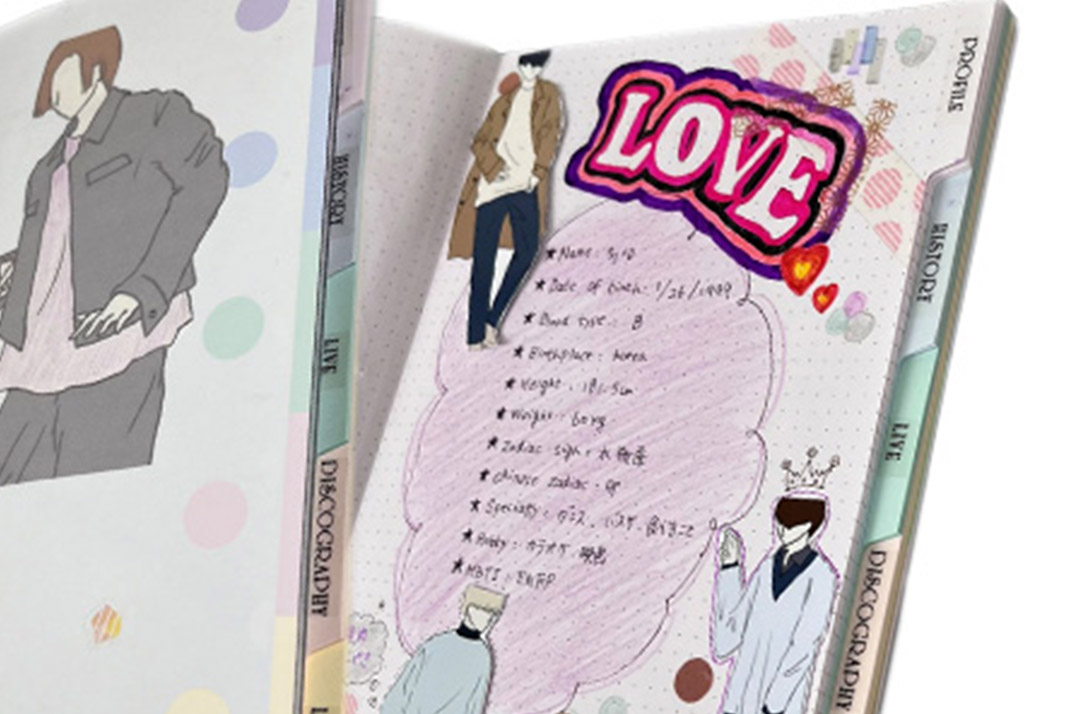 HISTORY
LIVE
DISCOGRAPHY
LOVE
★Name:
★Date of birth: 1/26/1999
★Blood type: B
★Birthplace: Korea
★Height: 181.5cm
★Weight: 60kg
★Zodiac sign: 水瓶座
★Chinese zodiac:
★Specialty: ダンス、バスケ、食べること
★Hobby: カラオケ、映画
★MBTI:
PROFILE
HISTORY
LIVE
DISCOGRAPHY